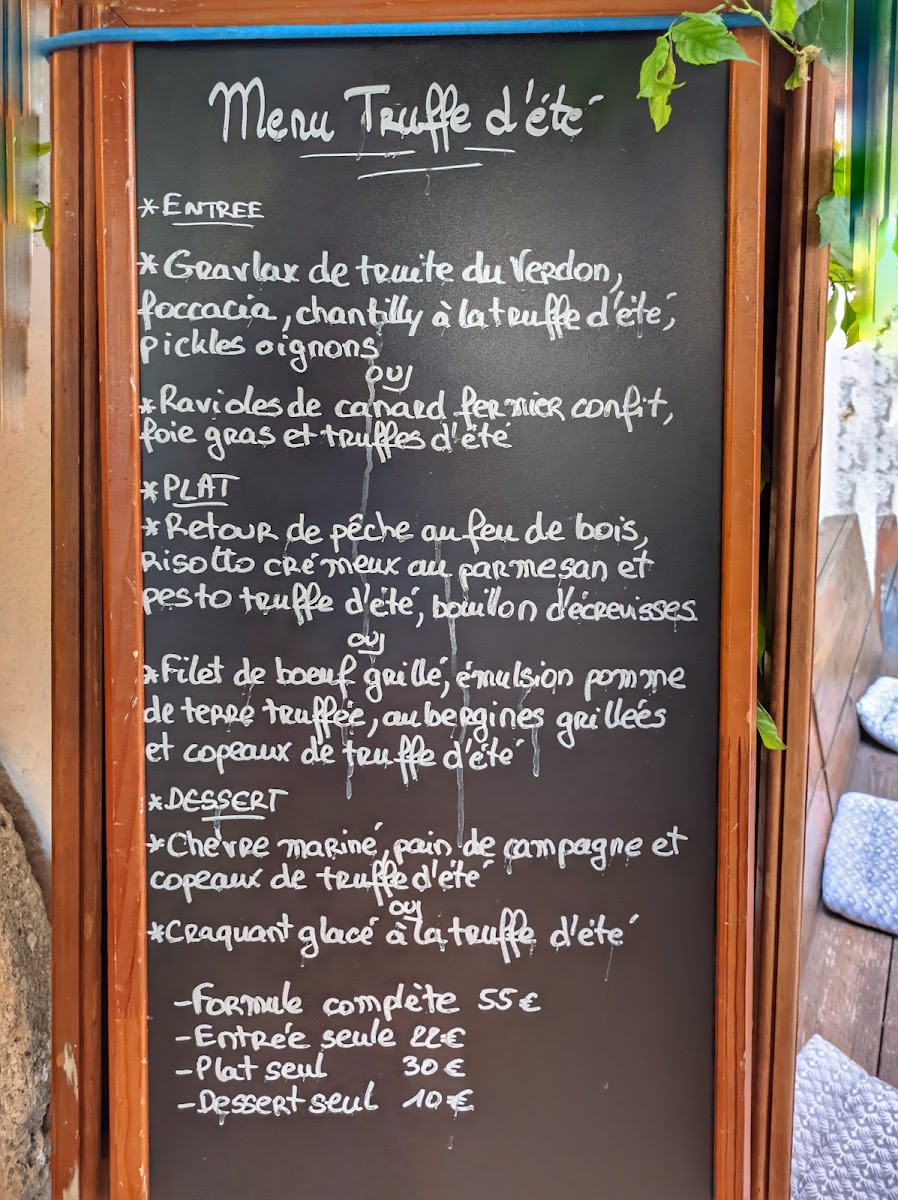 Menu Truffe d'été
*ENTREE
*Gravlax de truite du Verdon,
foccacia, chantilly à la truffe d'été,
pickles oignons
ou
*Ravioles de canard fermier confit,
foie gras et truffes d'été
*PLAT
*Retour de pêche au feu de bois,
risotto crémeux au parmesan et
pesto truffe d'été, bouillon d'écrevisses
ou
*Filet de boeuf grillé, émulsion pomme
de terre truffée, aubergines grilleés
et copeaux de truffe d'été
*DESSERT
*Chèvre mariné, pain de campagne et
copeaux de truffe d'été
ou
*Craquant glacé à la truffe d'été
-Formule complète 55€
-Entrée seule 22€
-Plat seul 30€
-Dessert seul 10€